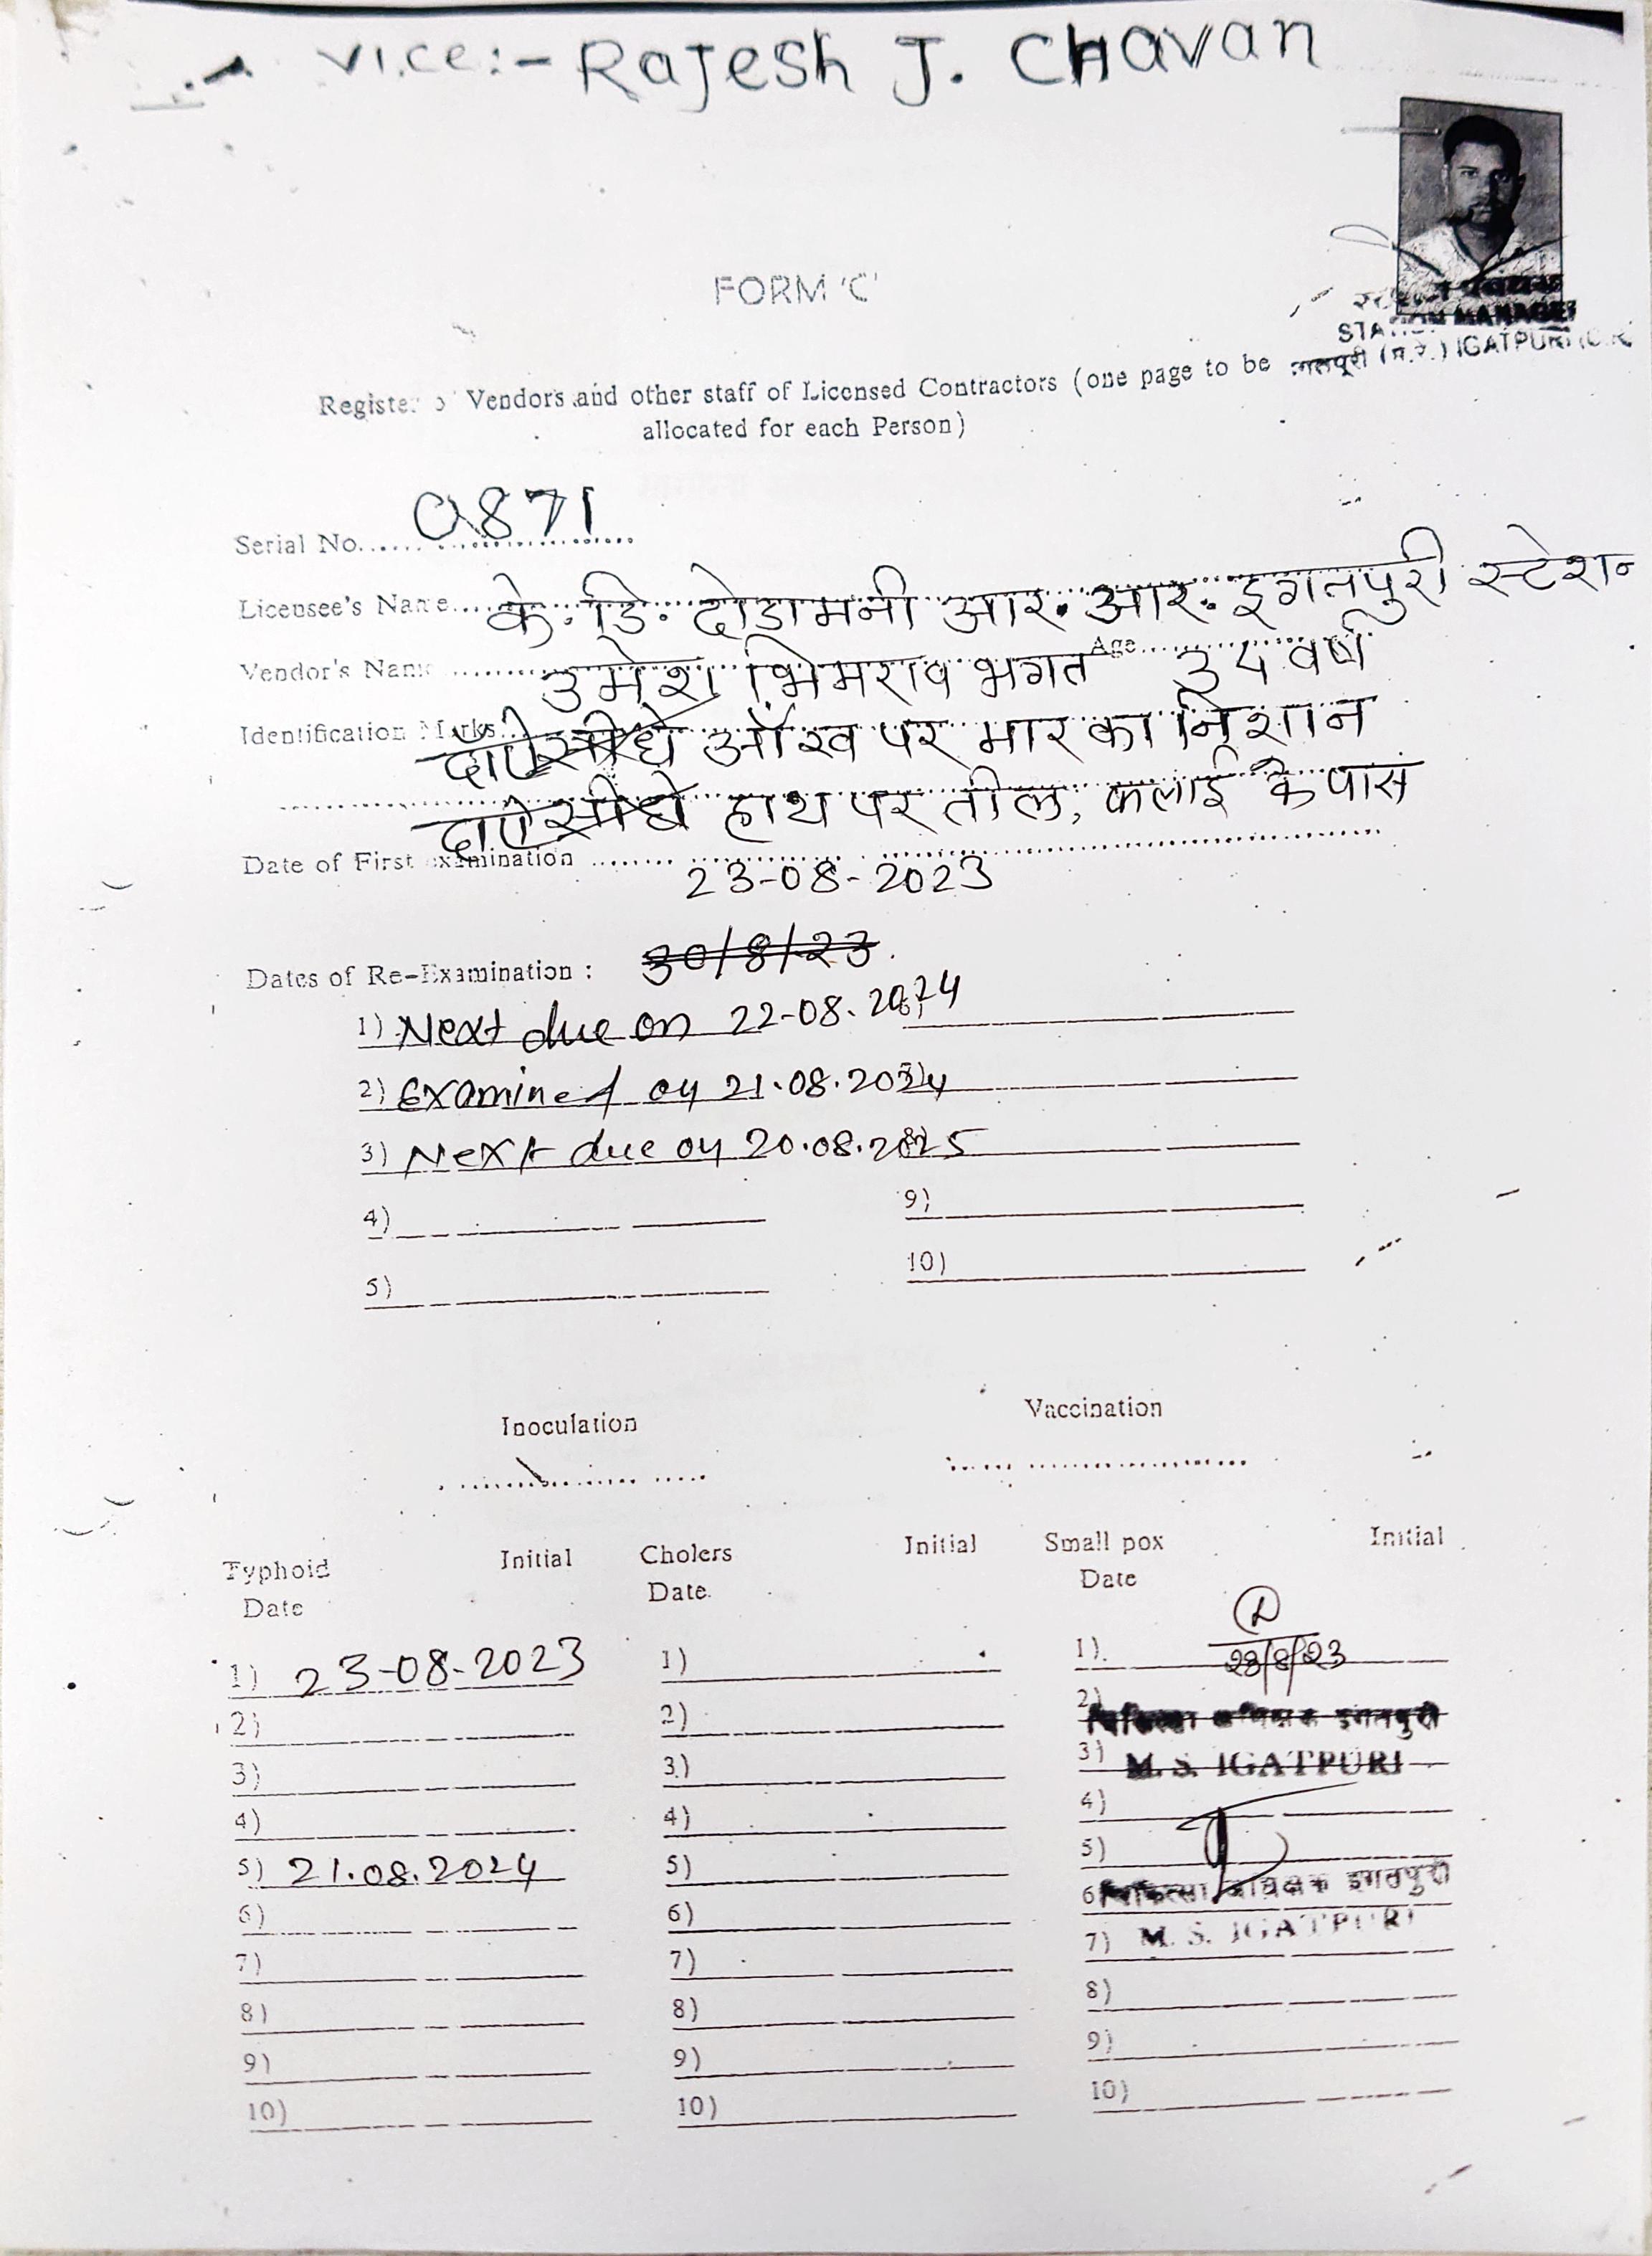 vice:- Rajesh J. Chavan
FORM 'C'
STATION MANAGER
इगतपूरी (म.रे.) IGATPURI (C.R.
Register of Vendors and other staff of Licensed Contractors (one page to be
allocated for each Person)
Serial No. 0871
Licensee's Name के. डि. दोडामनी आर. आर. इगतपुरी स्टेशन
Vendor's Name उमेश भिमराव भगत Age 34 वर्ष
Identification Marks दाऐ सीधे आँख पर मार का निशान
दाऐ सीधे हाथ पर तील, कलाई के पास
Date of First examination 23-08-2023
Dates of Re-Examination : 30/8/23.
1) Next due on 22-08-2024
2) Examined on 21.08.2024
3) Next due on 20.08.2025
4) 9)
5) 10)
Inoculation Vaccination
Typhoid Initial Cholers Initial Small pox Initial
Date Date. Date
1) 23-08-2023 1) 1) 23/8/23
2) 2) 2) चिकित्सा अधिक्षक इगतपुरी
3) 3) 3) M. S. IGATPURI
4) 4) 4)
5) 21.08.2024 5) 5)
6) 6) 6) चिकित्सा अधिक्षक इगतपुरी
7) 7) 7) M. S. IGATPURI
8) 8) 8)
9) 9) 9)
10) 10) 10)